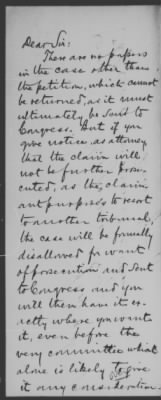 Dear Sir:
There are no papers
in the case other than
the petition, which cannot
be returned, as it must
ultimately be sent to
Congress. But if you
give notice, as attorney,
that the claim will
not be further prose-
cuted, as the claim-
ant purposes to resort
to another tribunal,
the case will be formally
disallowed for want
of prosecution and sent
to Congress and you
will then have it ex-
actly where you want
it, even before the
very committee which
alone is likely to give
it any consideration.